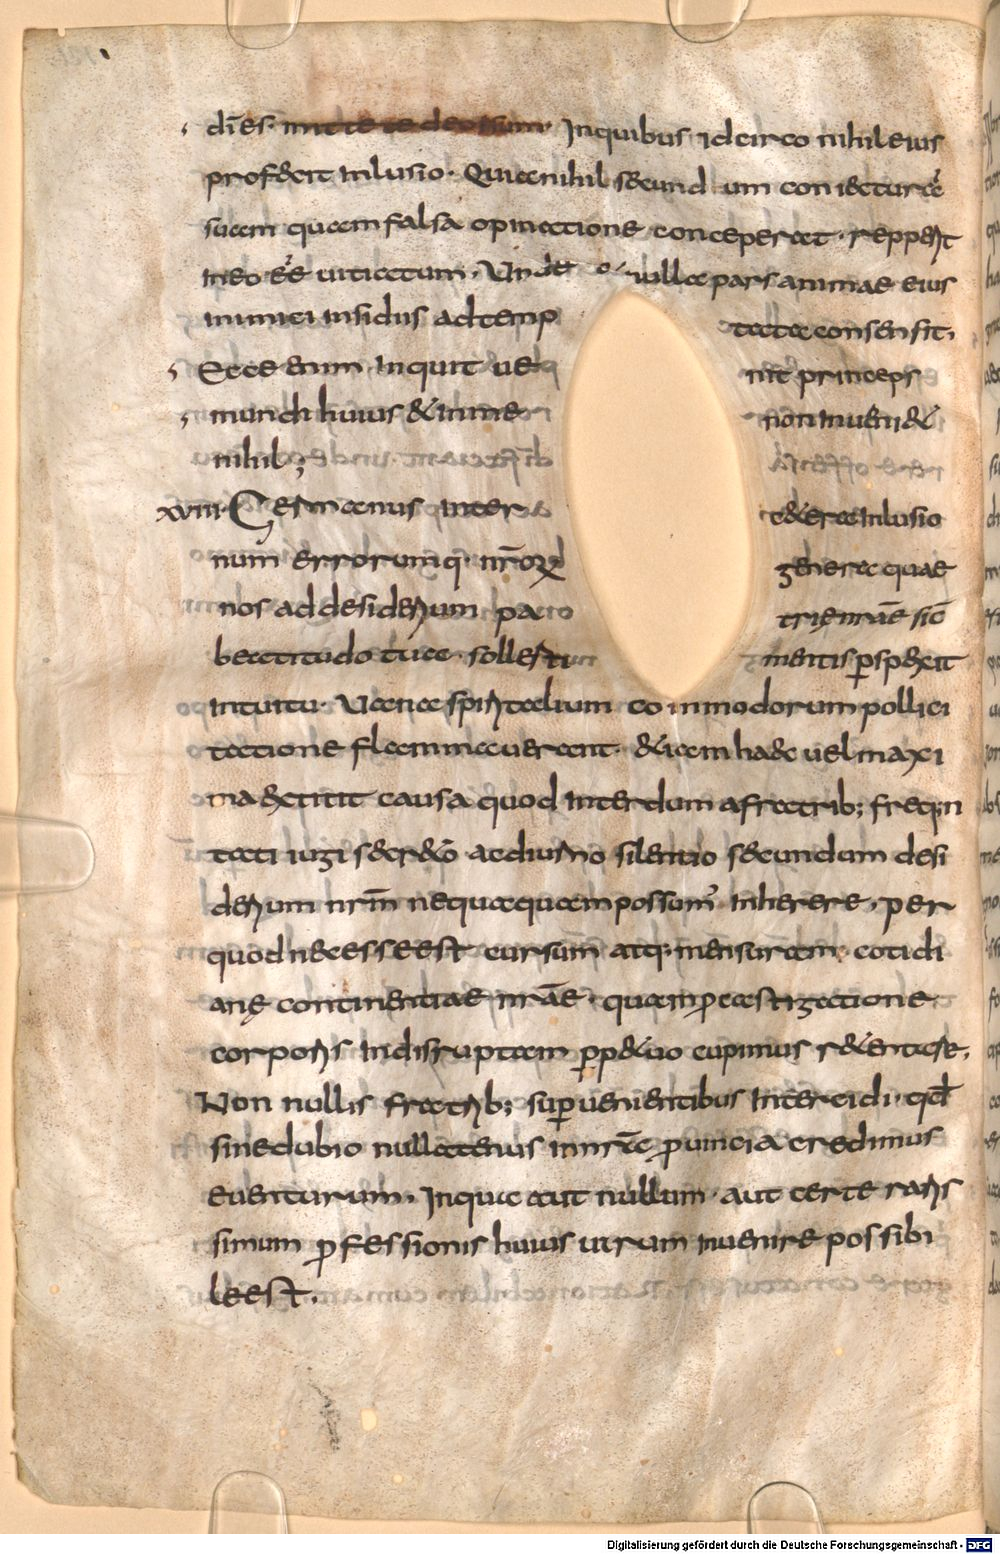 dīes. mitte te deorsum. Inquibus idcirco nihil eius
profecit inlusio. Quia nihil secund um coniecturā
suam quam falsa opinatione conceperat. repperit
ineo eē uitiatum. Unde ulla pars animae eius
inimici insidiis ad temp tata consensit.
Ecce enim inquit ue nit princeps
mundi huius & inme non inueni&
nihil;
xviiii. Germanus Inter c&era inlusio
num errorumq. nrōrū genera quae
nos ad desiderium pa trię nrāe sic
beatitudo tua. sollerti mentis pspexit
intuitu. Uana spiritalium commodorum pollici
tatione flammauerant. &iam haec uel maxi
ma extitit causa quod interdum afratrib; freqn
tati iugi secr&o ac diuturno silentio secundum desi
derium nrm nequaquam possum' inherere. per
quod necesse est cursum atq. mensuram cotidi
anę continentiae nrāe. quam pcastigatione
corporis indisruptam pp&uo cupimus r&entare.
Non nullis fratrib; supuenientibus intercidi. qd
sinedubio nullatenus innrā puincia credimus
euenturum. Inqua aut nullum. aut certe raris
simum pfessionis huius uirum inuenire possibi
le est.
Digitalisierung gefördert durch die Deutsche Forschungsgemeinschaft - DFG